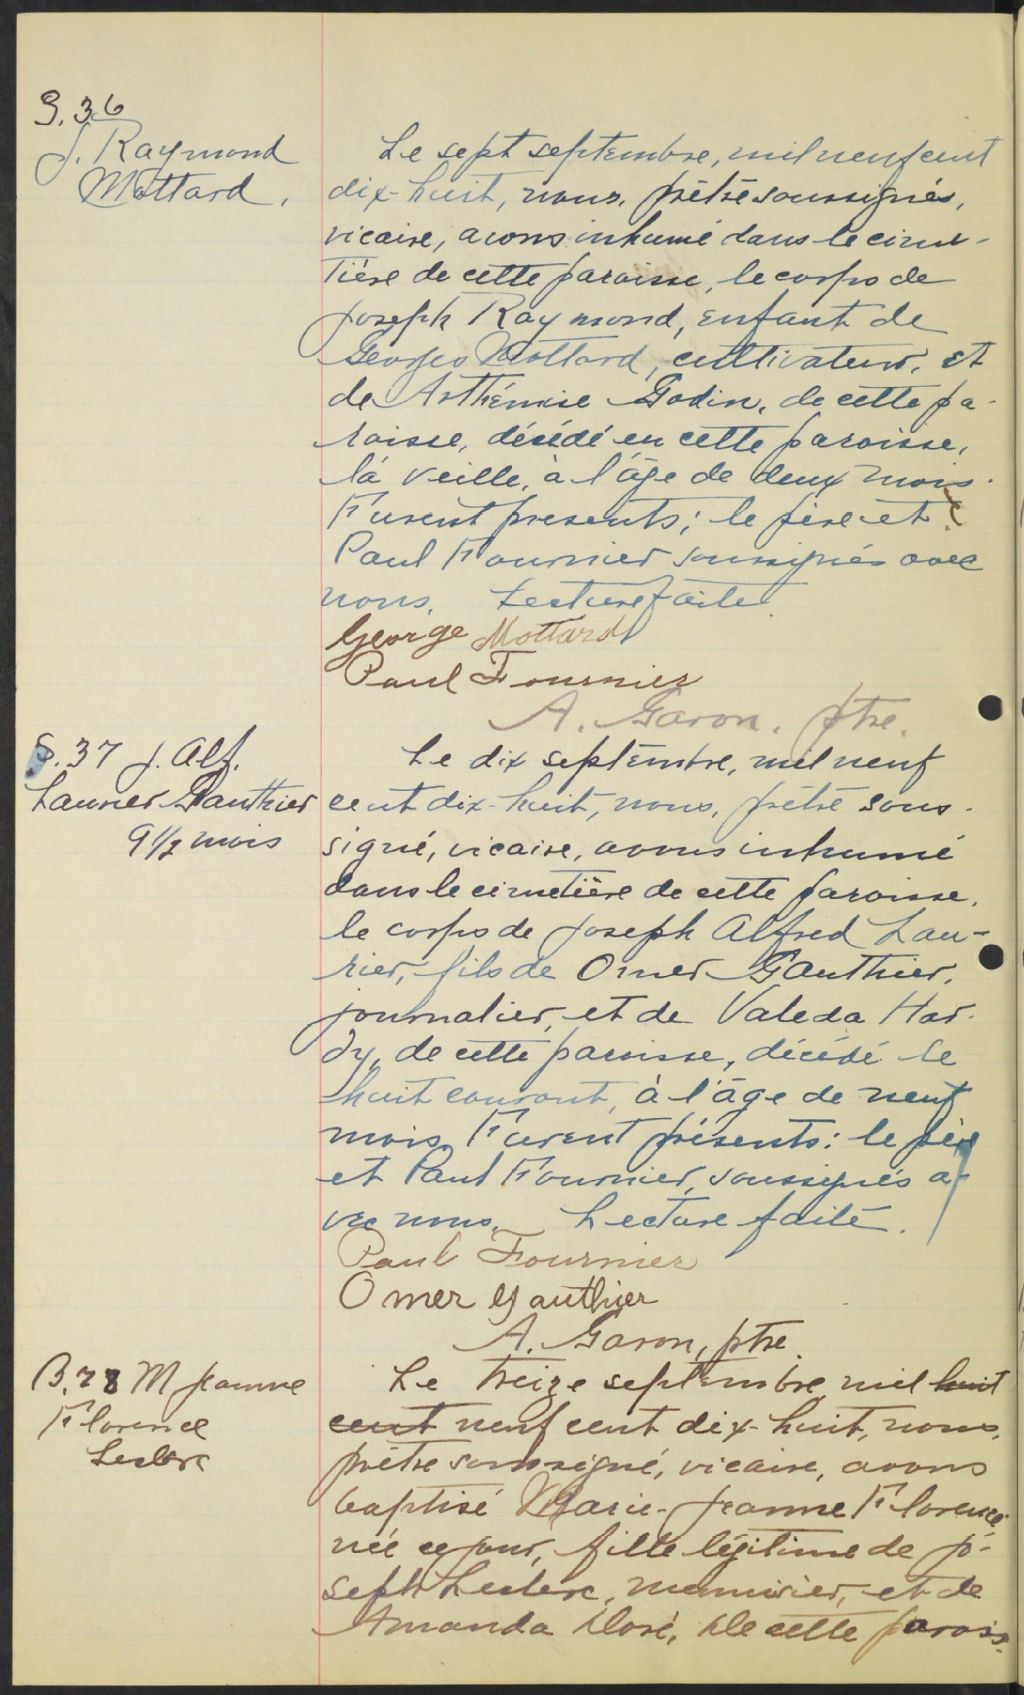 S. 36
J. Raymond
Mottard.
Le sept septembre, mil neuf cent
dix-huit, nous, prêtre soussignés,
vicaire, avons inhumé dans le cime-
tière de cette paroisse, le corps de
Joseph Raymond, enfant de
Georges Mottard, cultivateur, et
de Arthémise Godin, de cette pa-
roisse, décédé en cette paroisse,
la veille, à l'âge de deux mois.
Furent presents; le père et
Paul Fournier soussignés avec
nous. Lecture faite.
George Mottard
Paul Fournier
A. Garon. ptre.
S. 37 J. Alf.
Laurier Gauthier
9 1/2 mois
Le dix septembre, mil neuf
cent dix-huit, nous, prêtre sous-
signé, vicaire, avons inhumé
dans le cimetière de cette paroisse,
le corps de Joseph Alfred Lau-
rier, fils de Omer Gauthier,
journalier, et de Valeda Har-
dy, de cette paroisse, décédé le
huit courant, à l'âge de neuf
mois. Furent présents: le père
et Paul Fournier, soussignés a-
vec nous. Lecture faite.
Paul Fournier
Omer Gauthier
A. Garon, ptre.
B. 78 M Jeanne
Florence
Leclerc
Le treize septembre mil huit
cent neuf cent dix-huit, nous,
prêtre soussigné, vicaire, avons
baptisé Marie-Jeanne Florence
née ce jour, fille légitime de Jo-
seph Leclerc, menuisier, et de
Amanda Doré, de cette parois-